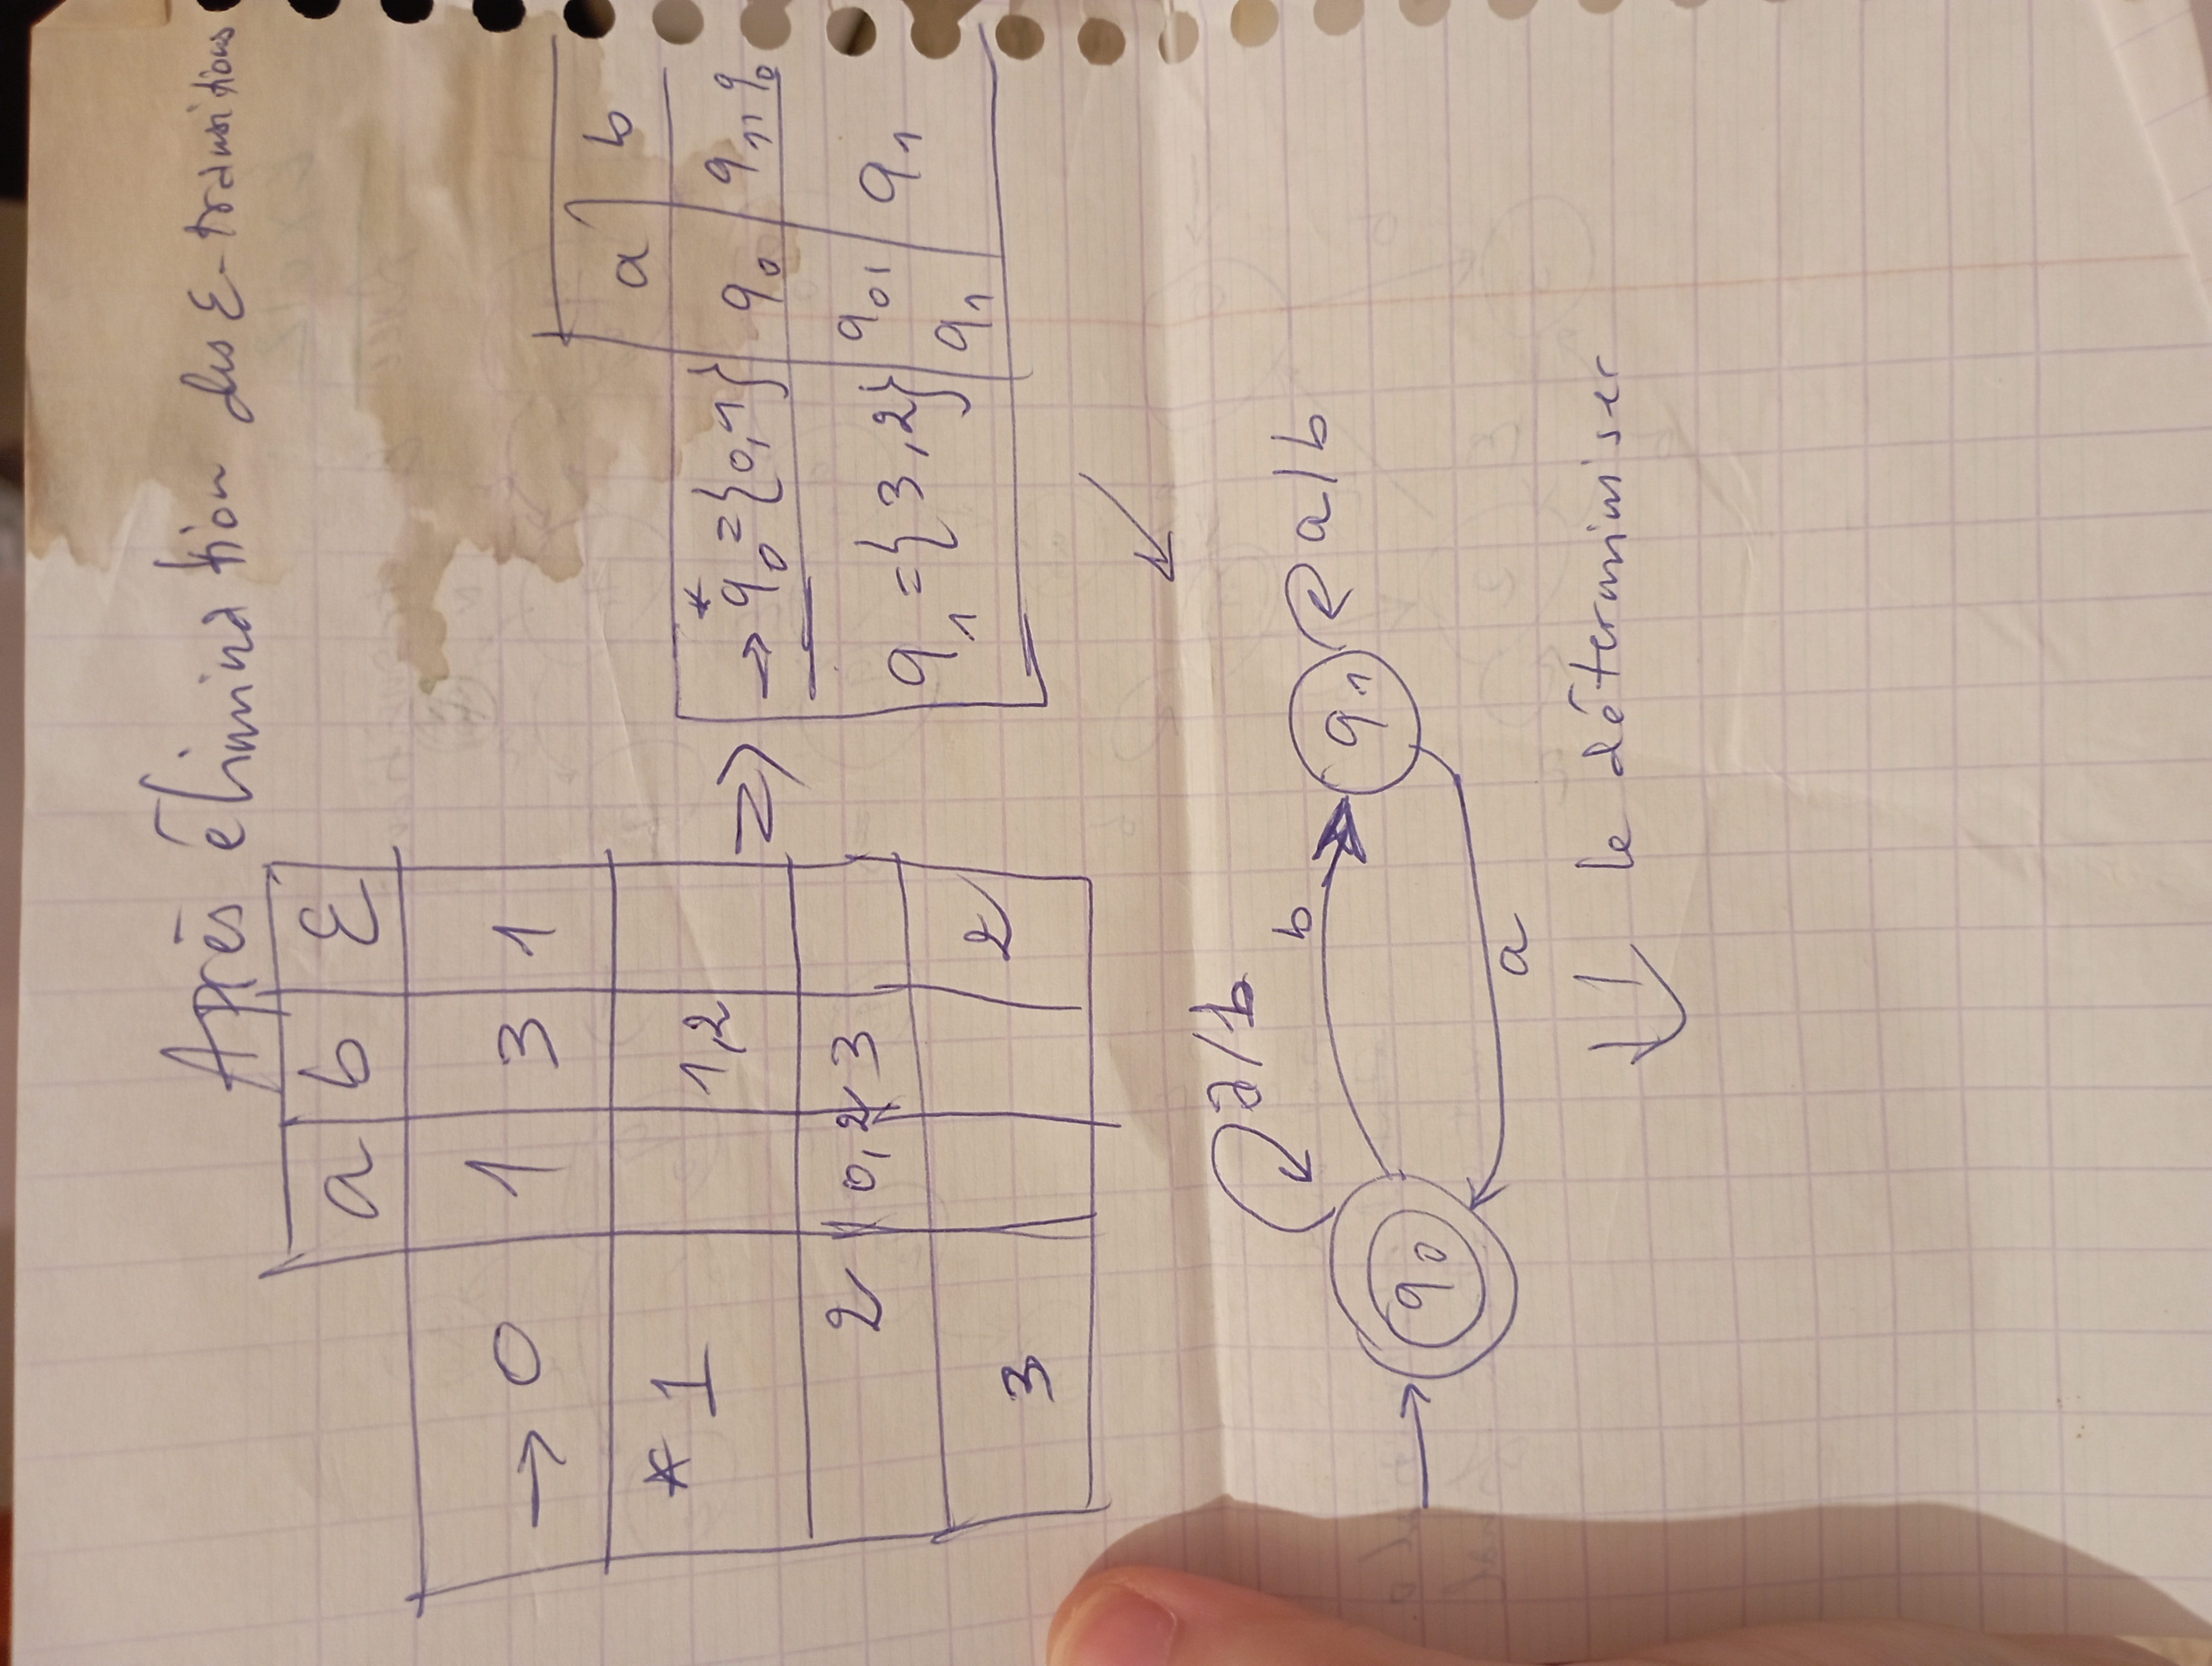 Après élimination des ε-transitions
a b ε
→ 0 1 3 1
* 1 1,2
2 0,2 3
3 2
⇒
a b
→ * q0 = {0,1} q0 q1, q0
q1 = {3,2} q0, q1 q1
a/b
b
q0
q1
a/b
a
le déterminiser